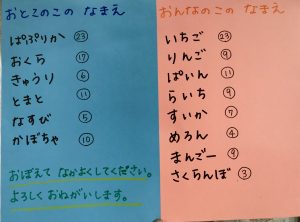 おとこのこの なまえ
ぱぷりか ㉓
おくら ⑰
きゅうり ⑥
とまと ⑪
なすび ⑤
かぼちゃ ⑩
おぼえて なかよくしてください。
よろしく おねがいします。
おんなのこの なまえ
いちご ㉓
りんご ⑨
ぱいん ⑪
らいち ⑨
すいか ⑦
めろん ④
まんごー ⑨
さくらんぼ ③